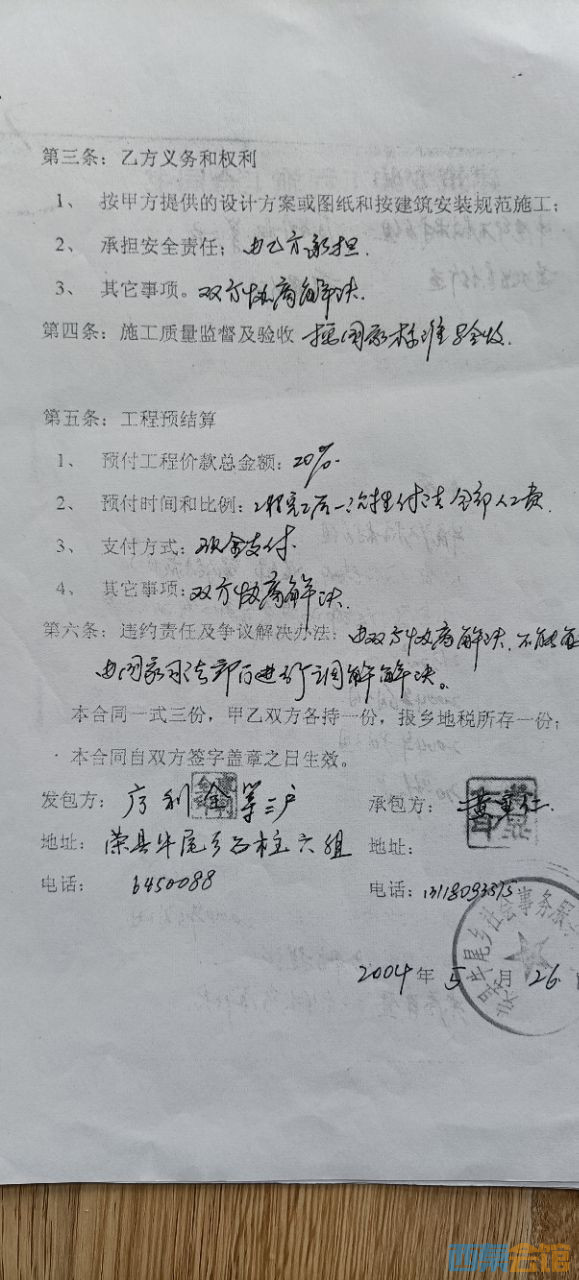 第三条：乙方义务和权利
1、 按甲方提供的设计方案或图纸和按建筑安装规范施工；
2、 承担安全责任；由乙方承担.
3、 其它事项。双方协商解决.
第四条：施工质量监督及验收 按国家标准验收.
第五条：工程预结算
1、 预付工程价款总金额：20%.
2、 预付时间和比例：工程完工后一次性付清全部人工费.
3、 支付方式：现金支付.
4、 其它事项：双方协商解决.
第六条：违约责任及争议解决办法：由双方协商解决.不能
由国家司法部门进行调解解决。
本合同一式三份，甲乙双方各持一份，报乡地税所存一份；
本合同自双方签字盖章之日生效。
发包方： 利金等三户 承包方：
地址： 荣县牛尾乡石柱六组 地址：
电话： 6450088 电话：
2004年5月26
牛尾乡社会事务服
西祠会馆